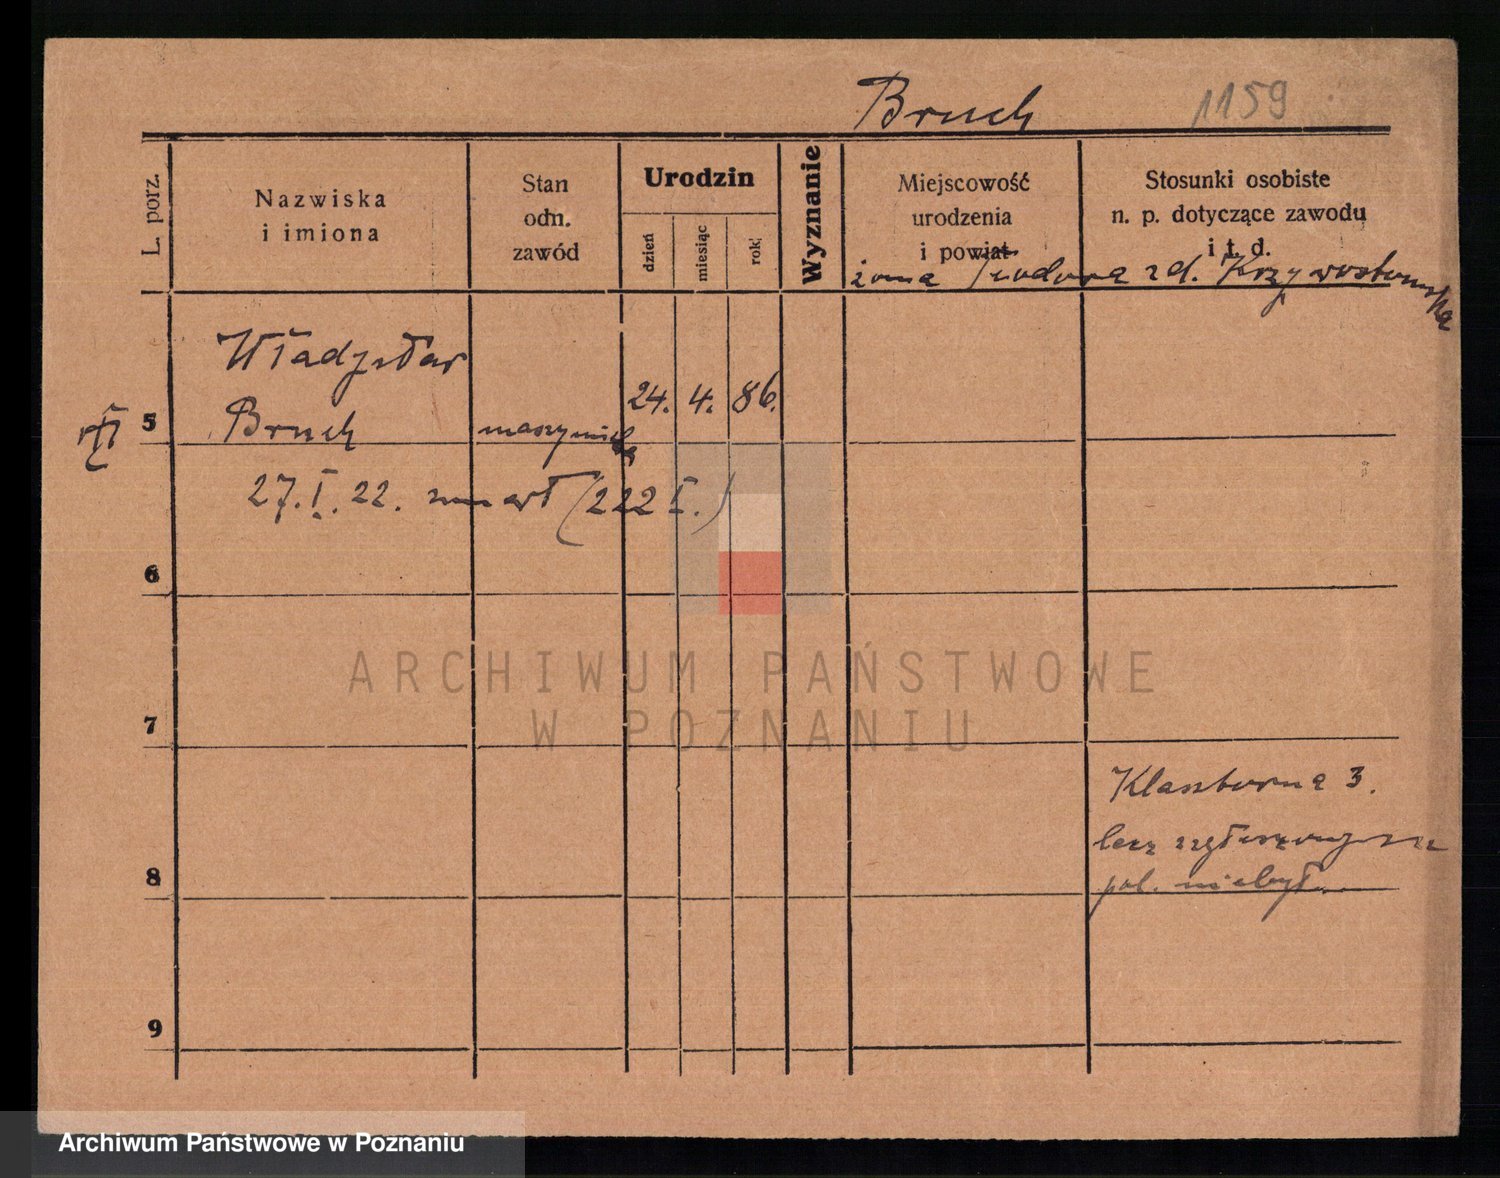 Bruch 1159
L. porz.
Nazwiska
i imiona
Stan
odn.
zawód
Urodzin
dzień
miesiąc
rok
Wyznanie
Miejscowość
urodzenia
i powiat
Stosunki osobiste
n. p. dotyczące zawodu
i t. d.
żona Teodora zd. Krzywostawska
Władysław
5 Bruch maszynista 24. 4. 86.
27. I. 22. zmarł (222 I.)
6
7
Klasztorna 3.
lecz zgłoszony
pol. niebył.
8
9
ARCHIWUM PAŃSTWOWE
W POZNANIU
Archiwum Państwowe w Poznaniu